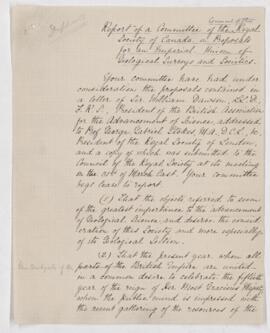 Report of a Committee of the Royal
Society of Canada on Proposals
for an Imperial Union of
Geological Surveys and Societies.
Your committee have had under
consideration the proposals contained in
a letter of Sir William Dawson, LL.D.,
F.R.S., President of the British Association
for the Advancement of Science, addressed
to Prof George Gabriel Stokes M.A. D.C.L, &c.
President of the Royal Society of London,
and a copy of which was submitted to the
Council of the Royal Society at its meeting
on the of March last. Your committee
begs leave to report.
(1) That the objects referred to seem
of the greatest importance to the advancement
of Geological Science, and deserve the consid-
eration of this Society and more especially
of its Geological Section.
(2) That the present year, when all
parts of the British Empire, are united
in a common desire to celebrate the fifti-
eth year of the reign of Her Most Gracious Majesty
when the public mind is impressed with
the recent gathering of the resources of the